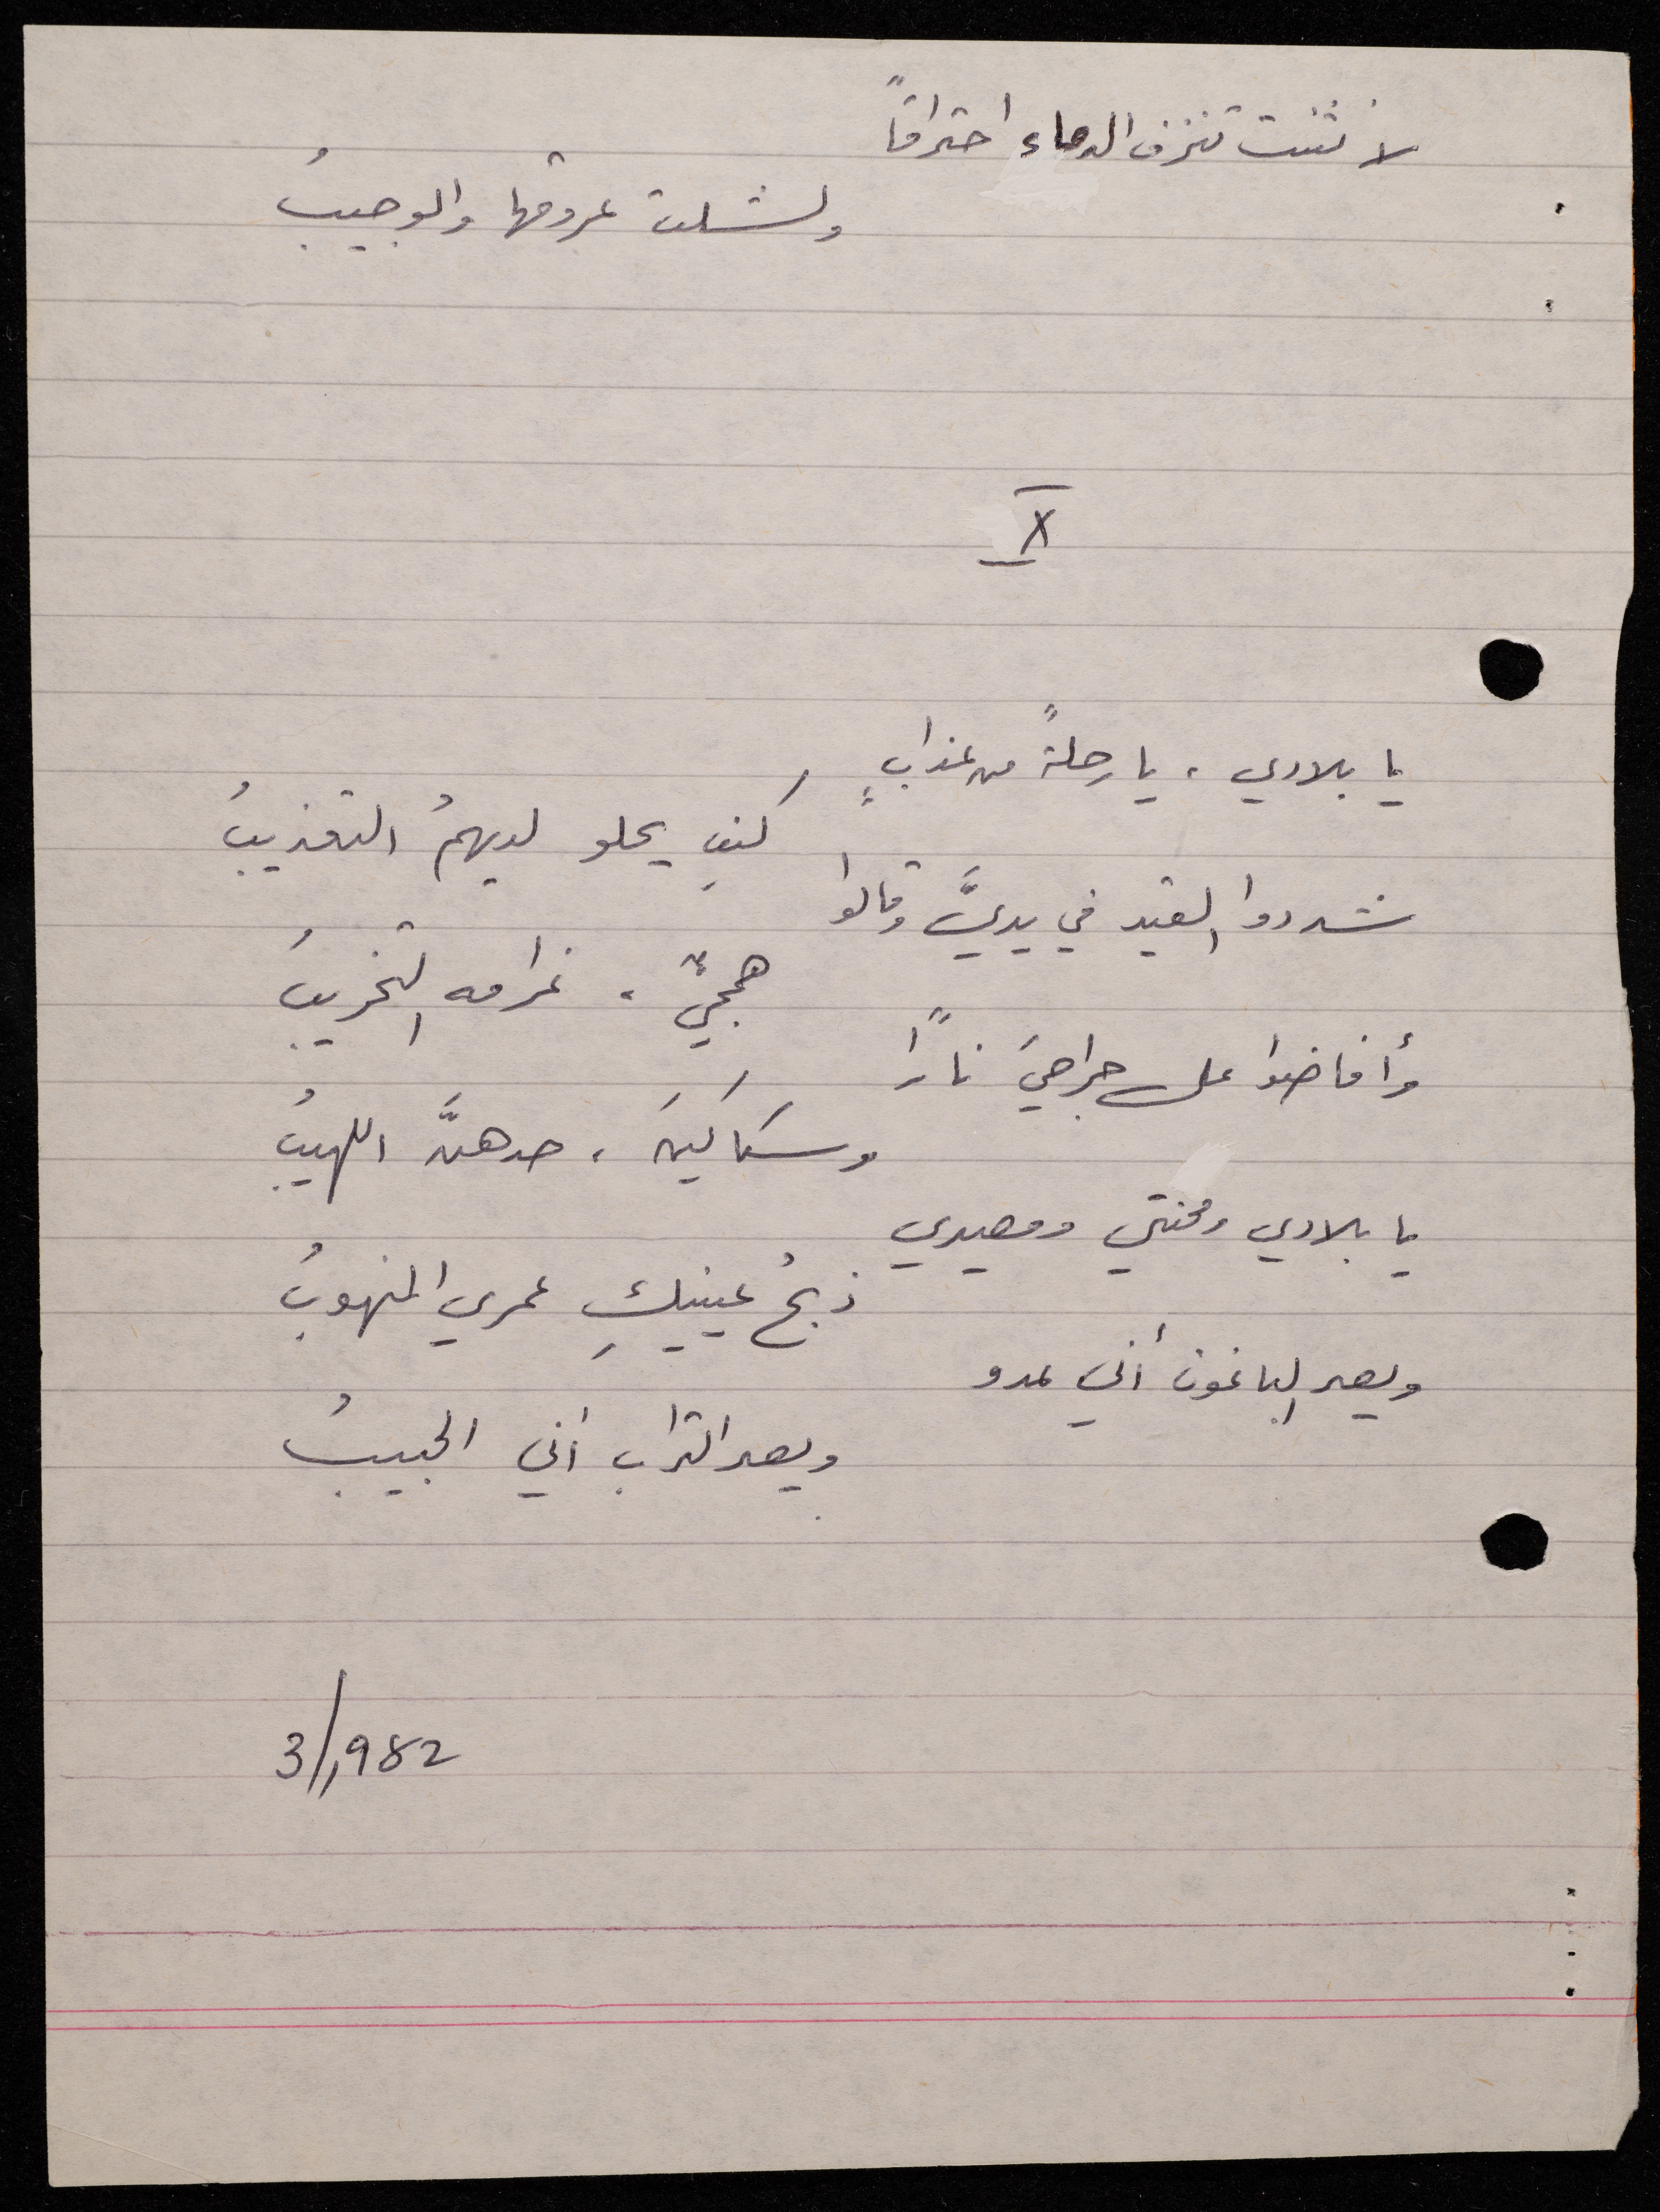 لانثنت تنزف الدماء احتراقاً
ولشلت عروقها والوجيبُ
X
يا بلادي، يا رحلةً من عذابٍ
كيفِ يحلو لديهمُ التعذيبُ
شددوا القيد في يديَّ وقالوا
همجيٌّ، غرامه التخريبُ
وأفاضوا على جراحيَ ناراً
وسَكَاكينَ، حدهنَّ اللهيبُ
يا بلادي ومحنتي ومصيري
ذبحُ عينيكِ عمري المنهوبُ
ويصر الباغون أني عدو
ويصر التراب أني الحبيبُ
3/1982